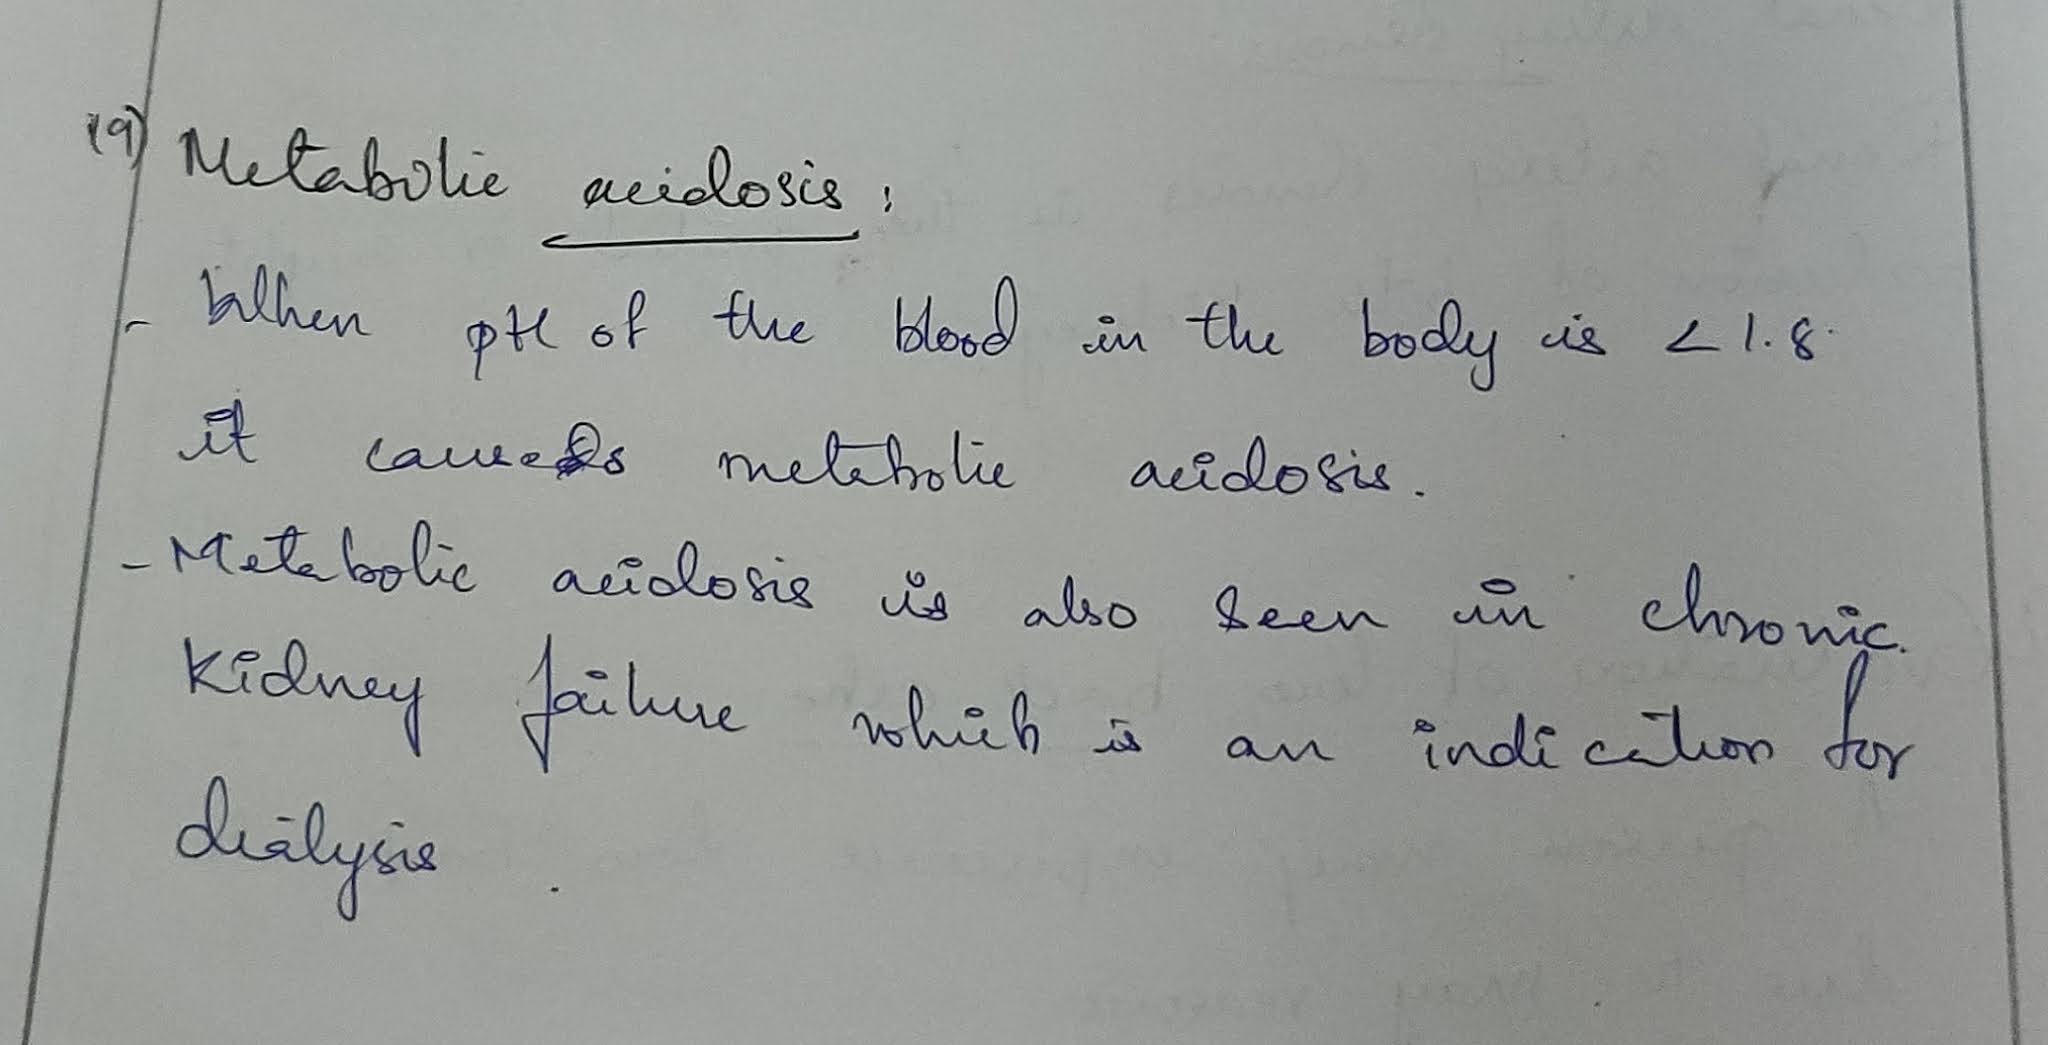 19) Metabolic acidosis :
- When pH of the blood in the body is < 1.8.
it causes metabolic acidosis.
- Metabolic acidosis is also seen in chronic.
Kidney failure which is an indication for
dialysis .